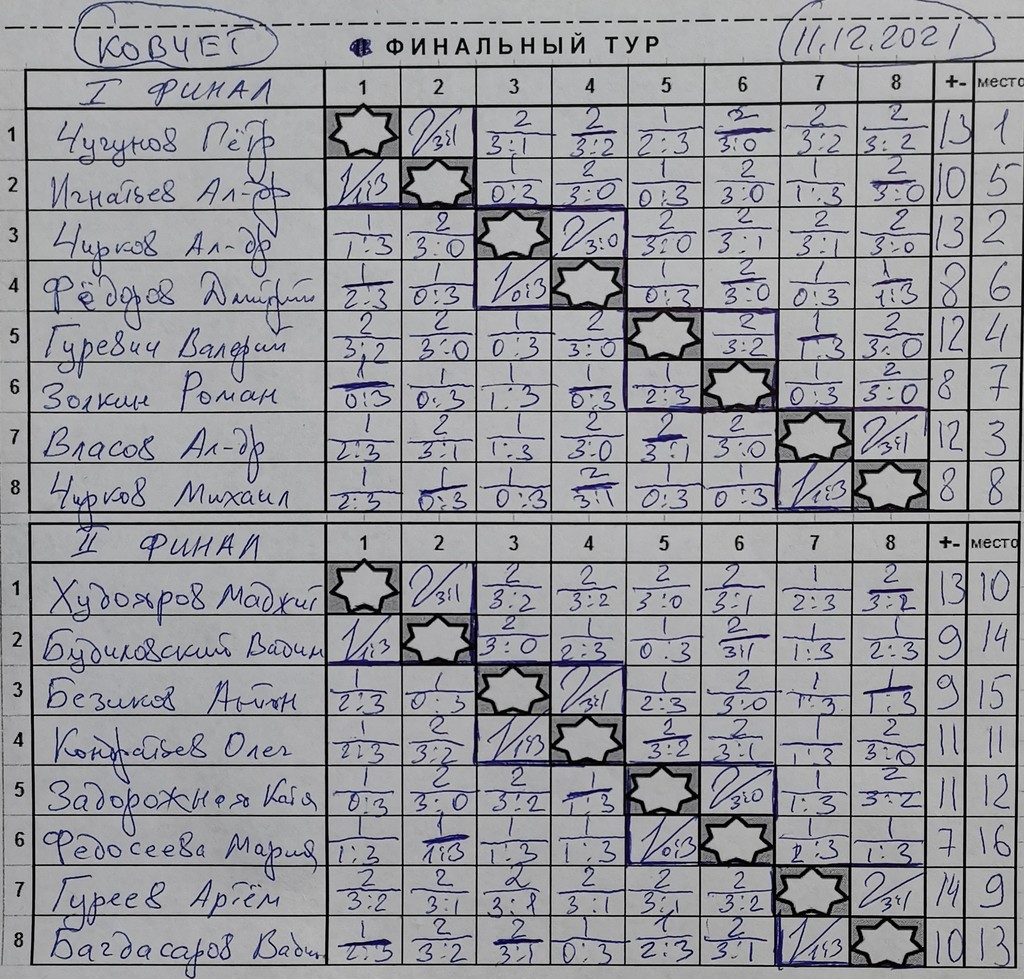 КОВЧЕГ ФИНАЛЬНЫЙ ТУР 11.12.2021
I ФИНАЛ 1 2 3 4 5 6 7 8 +- место
1 Чугунов Пётр 2/3:1 2/3:1 2/3:2 1/2:3 2/3:0 2/3:2 2/3:2 13 1
2 Игнатьев Ал-др 1/1:3 1/0:3 2/3:0 1/0:3 2/3:0 1/1:3 2/3:0 10 5
3 Чирков Ал-др 1/1:3 2/3:0 2/3:0 2/3:0 2/3:1 2/3:1 2/3:0 13 2
4 Фёдоров Дмитрий 1/2:3 1/0:3 1/0:3 1/0:3 2/3:0 1/0:3 1/1:3 8 6
5 Гуревич Валерий 2/3:2 2/3:0 1/0:3 2/3:0 2/3:2 1/1:3 2/3:0 12 4
6 Золкин Роман 1/0:3 1/0:3 1/1:3 1/0:3 1/2:3 1/0:3 2/3:0 8 7
7 Власов Ал-др 1/2:3 2/3:1 1/1:3 2/3:0 2/3:1 2/3:0 2/3:1 12 3
8 Чирков Михаил 1/2:3 1/0:3 1/0:3 2/3:1 1/0:3 1/0:3 1/1:3 8 8
II ФИНАЛ 1 2 3 4 5 6 7 8 +- место
1 Худояров Маджит 2/3:1 2/3:2 2/3:2 2/3:0 2/3:1 1/2:3 2/3:2 13 10
2 Будиловский Вадим 1/1:3 2/3:0 1/2:3 1/0:3 2/3:1 1/1:3 1/2:3 9 14
3 Безиков Антон 1/2:3 1/0:3 2/3:1 1/2:3 2/3:0 1/1:3 1/1:3 9 15
4 Кондратьев Олег 1/2:3 2/3:2 1/1:3 2/3:2 2/3:1 1/1:3 2/3:0 11 11
5 Задорожная Катя 1/0:3 2/3:0 2/3:2 1/1:3 2/3:0 1/1:3 2/3:2 11 12
6 Федосеева Мария 1/1:3 1/1:3 1/1:3 1/1:3 1/0:3 1/2:3 1/1:3 7 16
7 Гуреев Артём 2/3:2 2/3:1 2/3:1 2/3:1 2/3:1 2/3:2 2/3:1 14 9
8 Багдасаров Вадим 1/2:3 2/3:2 2/3:1 1/0:3 1/2:3 2/3:1 1/1:3 10 13